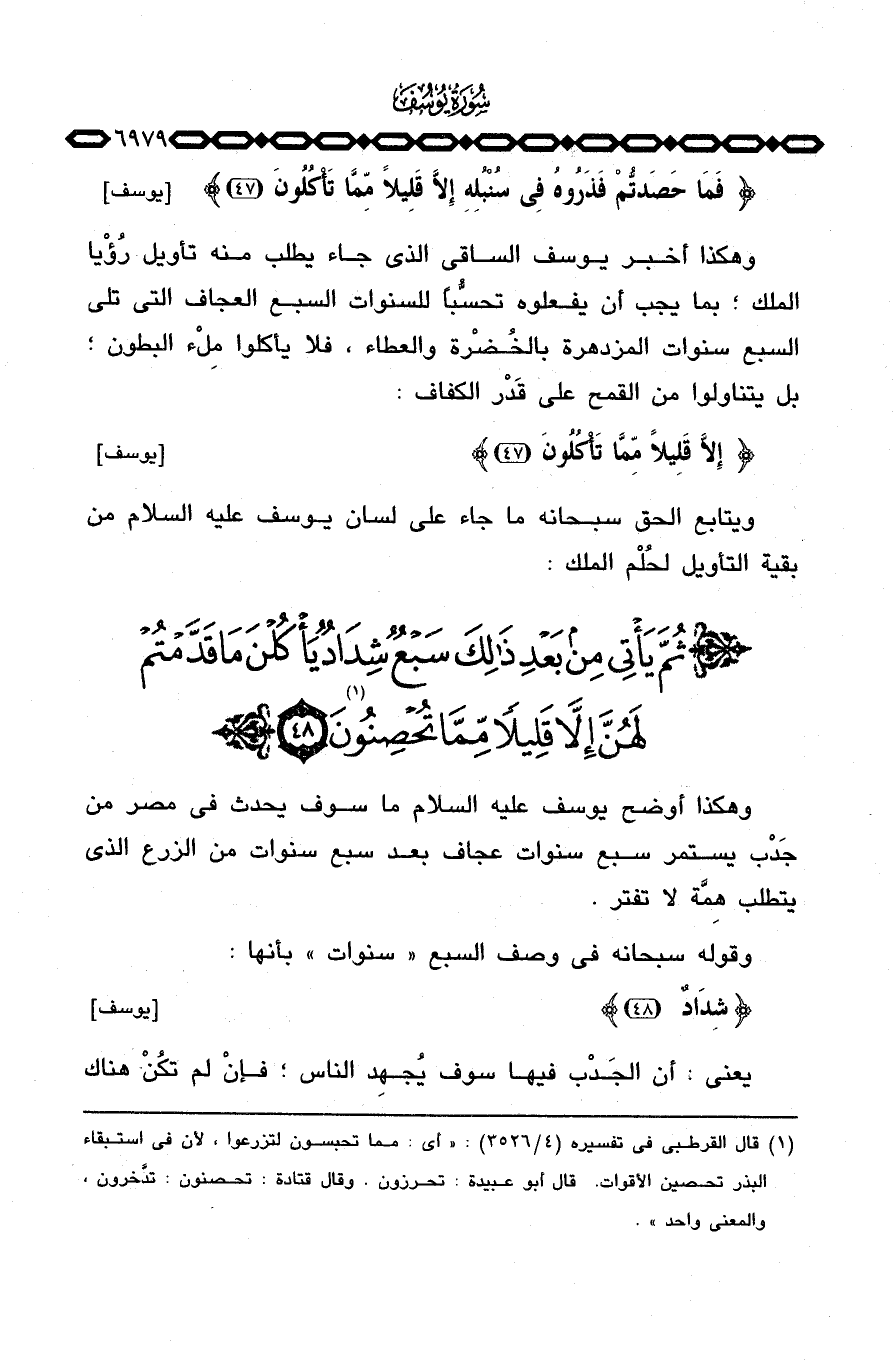 سُورَةُ يُوسُفَ
٦٩٧٩
﴿ فَمَا حَصَدتُّمْ فَذَرُوهُ فِى سُنْبُلِهِ إِلاَّ قَلِيلاً مِّمَّا تَأْكُلُونَ (٤٧) ﴾ [يوسف]
وهكذا أخبر يوسف الساقى الذى جاء يطلب منه تأويل رُؤْيا
الملك ؛ بما يجب أن يفعلوه تحسُّباً للسنوات السبع العجاف التى تلى
السبع سنوات المزدهرة بالخُضْرة والعطاء ، فلا يأكلوا مِلْء البطون ؛
بل يتناولوا من القمح على قَدْر الكفاف :
﴿ إِلاَّ قَلِيلاً مِّمَّا تَأْكُلُونَ (٤٧) ﴾ [يوسف]
ويتابع الحق سبحانه ما جاء على لسان يوسف عليه السلام من
بقية التأويل لحُلْم الملك :
ثُمَّ يَأْتِى مِنۢ بَعْدِ ذَٰلِكَ سَبْعٌ شِدَادٌ يَأْكُلْنَ مَا قَدَّمْتُمْ
لَهُنَّ إِلَّا قَلِيلًا مِّمَّا تُحْصِنُونَ (١) ٤٨
وهكذا أوضح يوسف عليه السلام ما سوف يحدث فى مصر من
جَدْب يستمر سبع سنوات عجاف بعد سبع سنوات من الزرع الذى
يتطلب هِمَّة لا تفتر .
وقوله سبحانه فى وصف السبع « سنوات » بأنها :
﴿ شِدَادٌ (٤٨) ﴾ [يوسف]
يعنى : أن الجَدْب فيها سوف يُجهِد الناس ؛ فإنْ لم تكُنْ هناك
(١) قال القرطبى فى تفسيره (٣٥٢٦/٤) : « أى : مما تحبسون لتزرعوا ، لأن فى استبقاء
البذر تحصين الأقوات. قال أبو عبيدة : تحرزون . وقال قتادة : تحصنون : تدَّخرون ،
والمعنى واحد » .